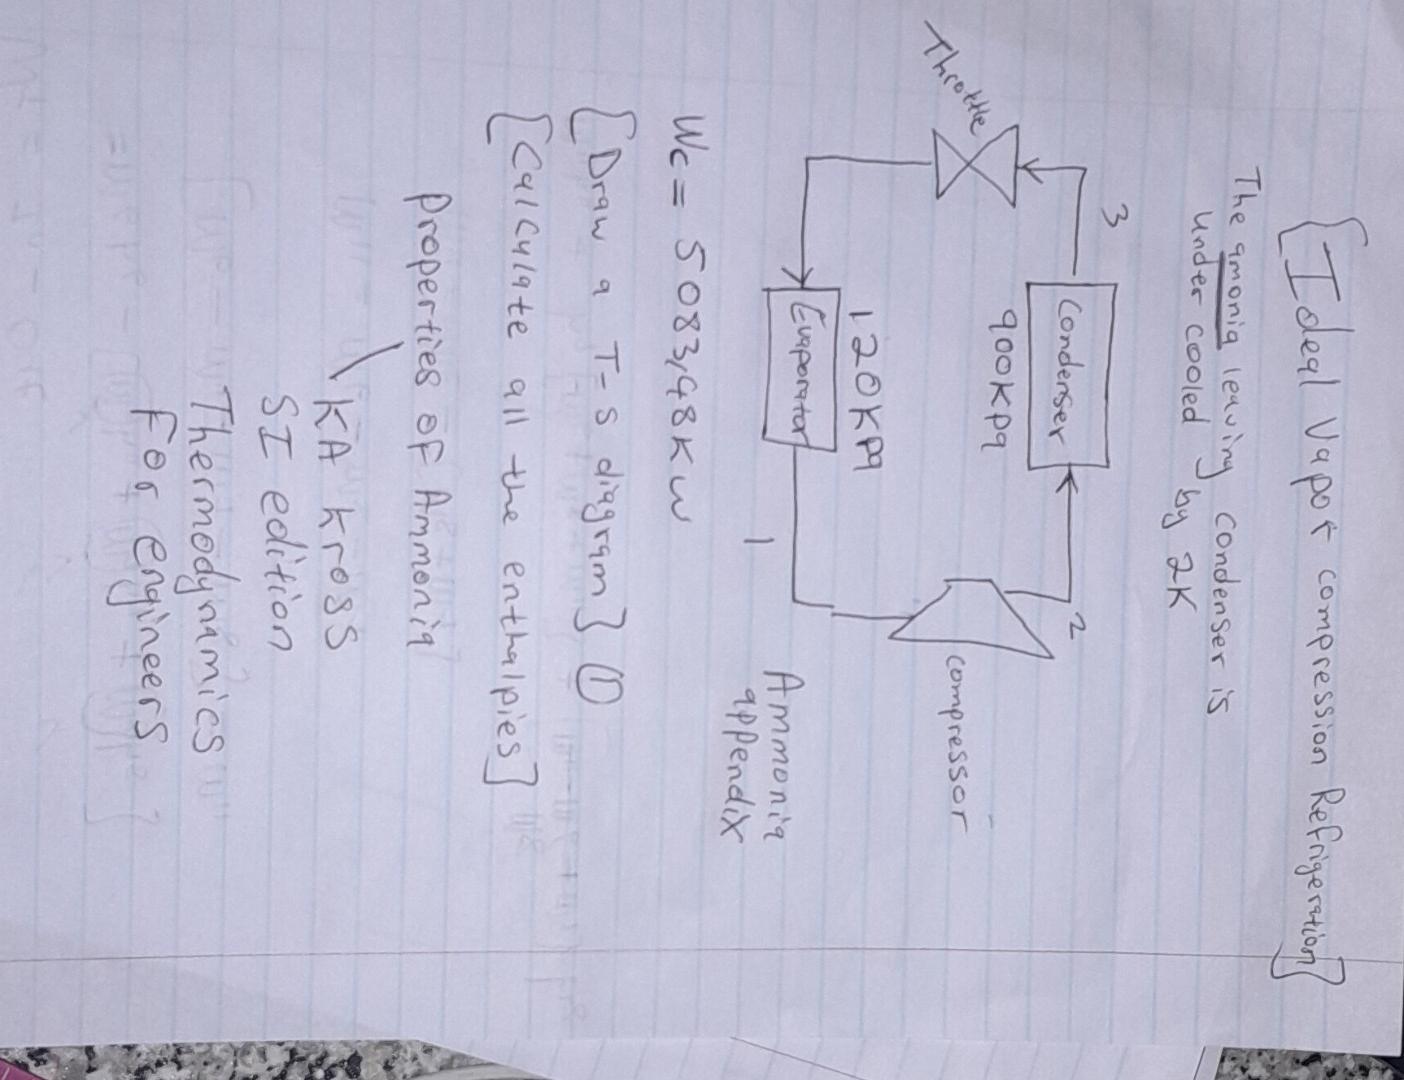 [Ideal Vapor compression Refrigeration]
The amonia leaving condenser is
under cooled by 2K
3
2
Condenser
900kpa
Throttle
compressor
120kpa
Evaporator
1
Ammonia
appendix
Wc = 5083,48kw
[Draw a T-s diagram] ①
[Calculate all the enthalpies]
properties of Ammonia
\ KA kross
SI edition
Thermodynamics
For engineers